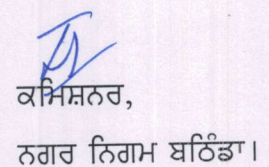 ਕਮਿਸ਼ਨਰ,
ਨਗਰ ਨਿਗਮ ਬਠਿੰਡਾ।